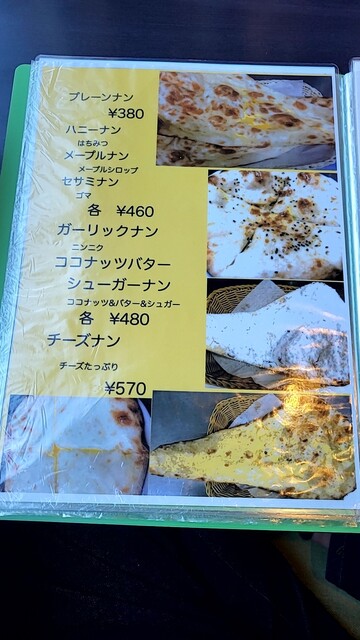 プレーンナン
¥380
ハニーナン
はちみつ
メープルナン
メープルシロップ
セサミナン
ゴマ
各 ¥460
ガーリックナン
ニンニク
ココナッツバター
シューガーナン
ココナッツ&バター&シュガー
各 ¥480
チーズナン
チーズたっぷり
¥570